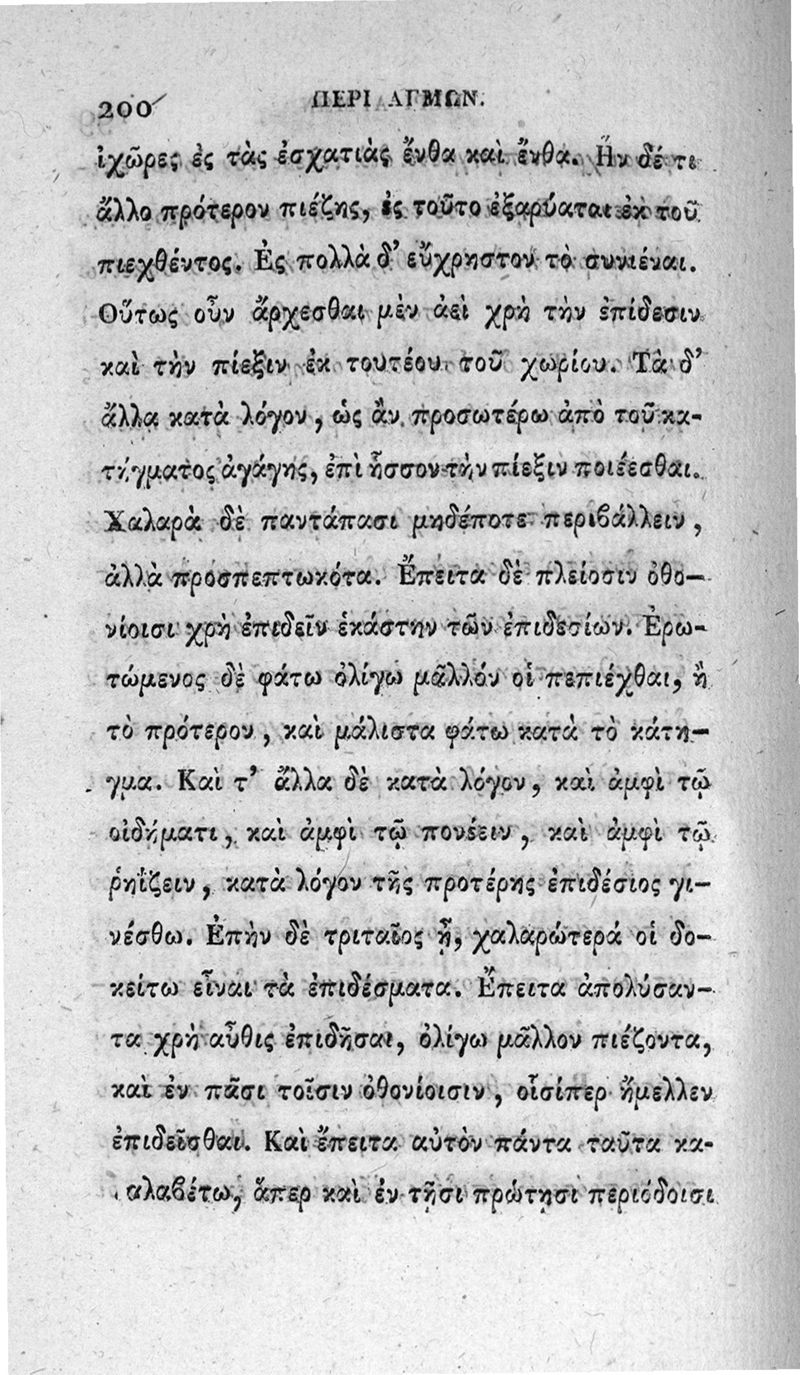 200
ΠΕΡΙ ΑΓΜΩΝ.
ἰχῶρες ἐς τὰς ἐσχατιὰς ἔνθα καὶ ἔνθα. Ἢν δέ τι
ἄλλο πρότερον πιέζῃς, ἐς τοῦτο ἐξαρύαται ἐκ τοῦ
πιεχθέντος. Ἐς πολλὰ δ' εὔχρηστον τὸ συνιέναι.
Οὕτως οὖν ἄρχεσθαι μὲν ἀεὶ χρὴ τὴν ἐπίδεσιν
καὶ τὴν πίεξιν ἐκ τουτέου τοῦ χωρίου. Τὰ δ'
ἄλλα κατὰ λόγον, ὡς ἂν προσωτέρω ἀπὸ τοῦ κα-
τήγματος ἀγάγῃς, ἐπὶ ἧσσον τὴν πίεξιν ποιέεσθαι.
Χαλαρὰ δὲ παντάπασι μηδέποτε περιβάλλειν,
ἀλλὰ προσπεπτωκότα. Ἔπειτα δὲ πλείοσιν ὀθο-
νίοισι χρὴ ἐπιδεῖν ἑκάστην τῶν ἐπιδεσίων. Ἐρω-
τώμενος δὲ φάτω ὀλίγῳ μᾶλλόν οἱ πεπιέχθαι, ἢ
τὸ πρότερον, καὶ μάλιστα φάτω κατὰ τὸ κάτη-
γμα. Καὶ τ' ἄλλα δὲ κατὰ λόγον, καὶ ἀμφὶ τῷ
οἰδήματι, καὶ ἀμφὶ τῷ πονέειν, καὶ ἀμφὶ τῷ
ῥηΐζειν, κατὰ λόγον τῆς προτέρης ἐπιδέσιος γι-
νέσθω. Ἐπὴν δὲ τριταῖος ᾖ, χαλαρώτερά οἱ δο-
κείτω εἶναι τὰ ἐπιδέσματα. Ἔπειτα ἀπολύσαν-
τα χρὴ αὖθις ἐπιδῆσαι, ὀλίγῳ μᾶλλον πιέζοντα,
καὶ ἐν πᾶσι τοῖσιν ὀθονίοισιν, οἷσίπερ ἤμελλεν
ἐπιδεῖσθαι. Καὶ ἔπειτα αὐτὸν πάντα ταῦτα κα-
αλαβέτω, ἅπερ καὶ ἐν τῇσι πρώτῃσι περιόδοισι